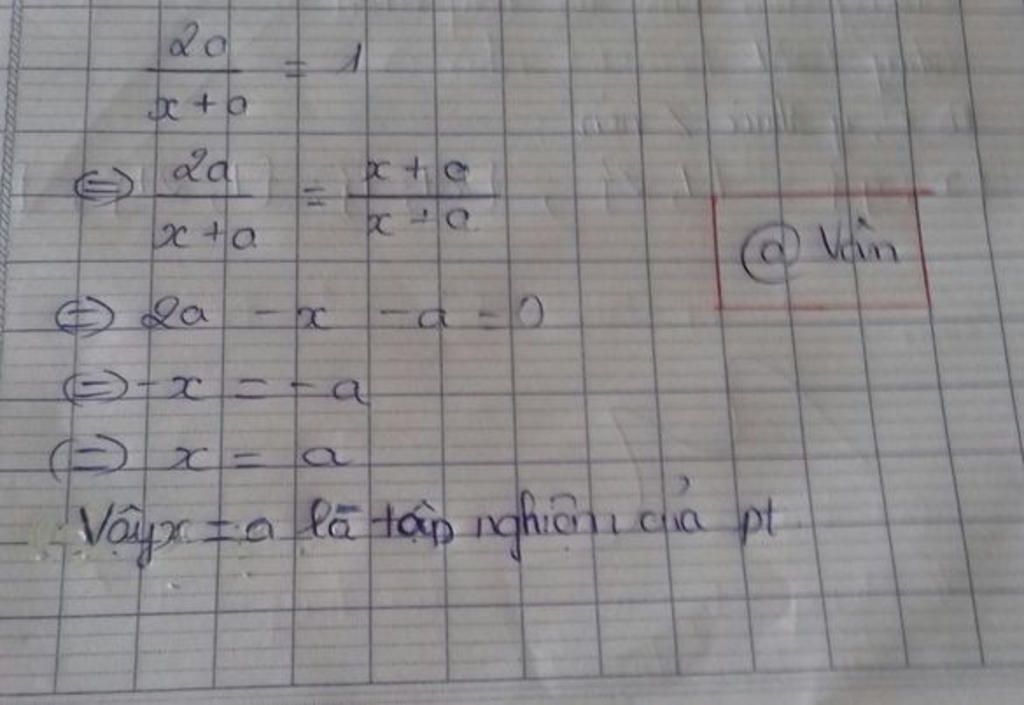 2a/x+a = 1
⇔ 2a/x+a = x+a/x+a
⇔ 2a - x - a = 0
⇔ -x = -a
⇔ x = a
Vậy x = a là tập nghiệm của pt
@ Vân